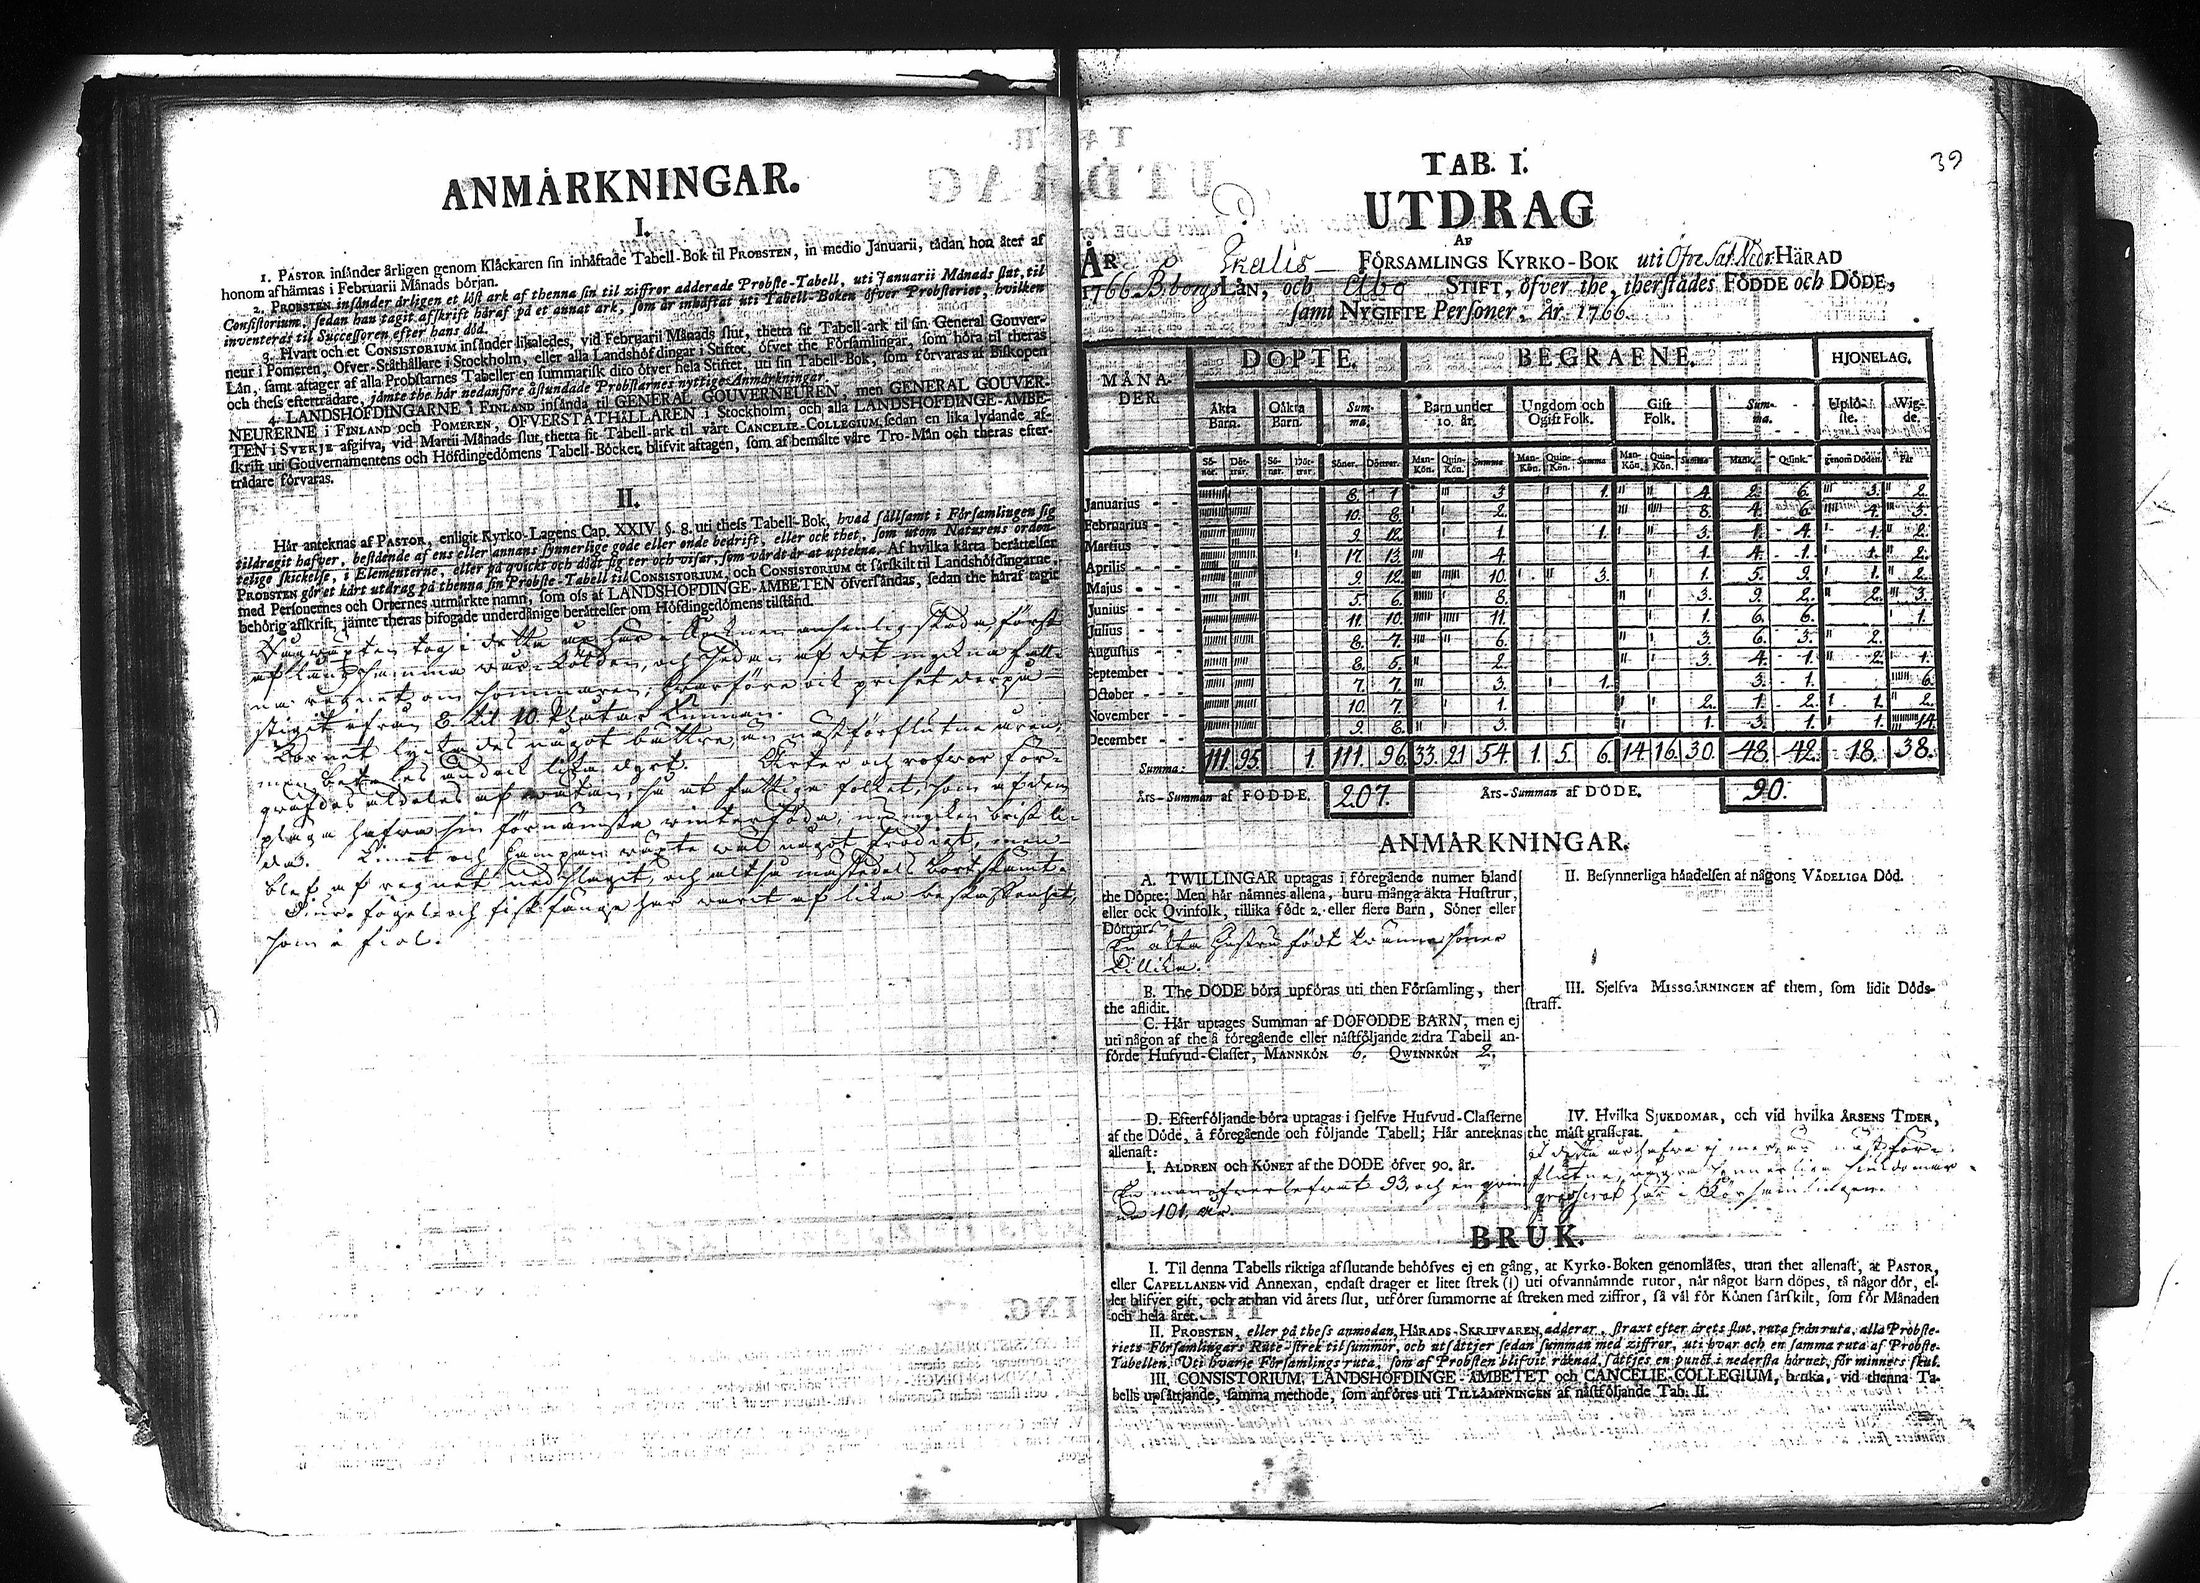 ANMÅRKNINGAR.
I.
1. PASTOR insånder årligen genom Klåckaren sin inhåftade Tabell-Bok til PROBSTEN, in medio Januarii, tådan hon åter af
honom afhåmtas i Februarii Månads början.
2. PROBSTEN insånder årligen et löst ark af thenna sin til ziffror adderade Probste-Tabell, uti Januarii Månads slut, til
Consistorium, sedan han tagit afskrift håraf på et annat ark, som år inhåftat uti Tabell-Boken öfver Probsteriet, hvilken
inventeras til Successoren efter hans död.
3. Hvart och et CONSISTORIUM insånder likaledes, vid Februarii Månads slut, thetta sit Tabell-ark til sin General Gouver-
neur i Pomeren, Öfver-Ståthållare i Stockholm, eller alla Landshöfdingar i Stiftet, öfver the Församlingar, som höra til theras
Lån, samt aftager af alla Probstarnes Tabeller en summarisk dito öfver hela Stiftet, uti sin Tabell-Bok, som förvaras af Biskopen
och thess eftertrådare, jåmte the hår nedanföre åstundade Probstarnes nyttige Anmårkningar.
4. LANDSHÖFDINGARNE i FINLAND insånda til GENERAL GOUVERNEUREN, men GENERAL GOUVER-
NEURERNE i FINLAND och POMEREN, ÖFVERSTÅTHÅLLAREN i Stockholm, och alla LANDSHÖFDINGE-ÅMBE-
TEN i SVERJE afgifva, vid Martii Månads slut, thetta sit Tabell-ark til vårt CANCELIE-COLLEGIUM, sedan en lika lydande af-
skrift uti Gouvernamentens och Höfdingedömens Tabell-Böcker, blifvit aftagen, som af bemålte våre Tro-Mån och theras efter-
trådare förvaras.
II.
Hår anteknas af PASTOR, enligit Kyrko-Lagens Cap. XXIV. §. 8. uti thess Tabell-Bok, hvad sållsamt i Församlingen sig
tildragit hafver, bestående af ens eller annans synnerlige gode eller onde bedrift, eller ock thet, som utom Naturens orden-
telige skickelse, i Elementerne, eller på qvickt och dödt sig ter och visar, som vårdt år at uptekna. Af hvilka kårta beråttelser
PROBSTEN gör et kårt utdrag på thenna sin Probste-Tabell til CONSISTORIUM, och CONSISTORIUM et sårskilt til Landshöfdingarne,
med Personernes och Orternes utmårkte namn, som oss af LANDSHÖFDINGE-ÅMBETEN öfversåndas, sedan the håraf tagit
behörig afskrift, jåmte theras bifogade underdånige beråttelser om Höfdingedömens tilstånd.
tog i detta år här i Socknen ansenlig skada, först
af var kölden, och sedan af det myckna falli-
na regnet om sommaren, hvarföre ock priset derpå
stigit ifrån 8 til 10 Platar Tunnan.
Kornet lyckades något bättre, än nästförflutne åren,
men betaltes ändock lika dyrt. Ärter och rofvor för-
blef af regnet nedslagit, och altså mästedels bortskämt.
Diur- fogel- och fiskfånge har varit af lika beskaffenhet,
som i fiol.
39
TAB. I.
UTDRAG
AF
ÅR FÖRSAMLINGS KYRKO-BOK uti Öfre Sat. Nedr. HÄRAD
1766. B:borgs LÅN, och Åbo STIFT, öfver the, therstådes FÖDDE och DÖDE,
samt NYGIFTE Personer. År 1766.
MÅNA-DER. DÖPTE. BEGRAFNE. HJONELAG.
Åkta Barn. Oåkta Barn. Summa. Barn under 10. år. Ungdom och Ogift Folk. Gift Folk. Summa. Uplöste. Wigde.
Söner. Döttrar. Söner. Döttrar. Söner. Döttrar. Man-Kön. Quin-Kön. Summa Man-Kön. Quin-Kön. Summa Man-Kön. Quin-Kön. Summa Mank. Quink. genom Döden. Par
Januarius - - 8. 1 3. 1. 4. 2. 6. 3. 2.
Februarius - - 10. 8. 2. 8. 4. 6. 4. 3.
Martius - - 9. 12. 1. 1. 3. 1. 4. 1. 2.
Aprilis - - 17. 13. 4. 1. 4. 1. 1. 2.
Majus - - 9. 12. 10. 3. 1. 5. 9. 1. 2.
Junius - - 5. 6. 8. 3. 9. 2. 2. 3.
Julius - - 11. 10. 11. 1. 6. 6. 1.
Augustus - - 8. 7. 6. 3. 6. 3. 2.
September - - 8. 6. 2. 3. 4. 1. 2. 1.
October - - 7. 7. 3. 1. 3. 1. 6.
November - - 10. 7. 1. 2. 1. 2. 1. 2.
December - - 9. 8. 3. 1. 3. 1. 1. 14.
Summa: 111. 95. 1. 111. 96. 33. 21 54. 1. 5. 6. 14. 16. 30. 48. 42. 18. 38.
Års-Summan af FÖDDE. 207. Års-Summan af DÖDE. 90.
ANMÅRKNINGAR.
A. TWILLINGAR uptagas i föregående numer bland
the Döpte; Men hår nåmnes allena, huru många åkta Hustrur,
eller ock Qvinfolk, tillika födt 2. eller flere Barn, Söner eller
Döttrar.
En äkta Hustru födt tvänne söner
tillika.
B. The DÖDE böra upföras uti then Församling, ther
the aflidit.
C. Hår uptages Summan af DÖFÖDDE BARN, men ej
uti någon af the å föregående eller nåstföljande 2:dra Tabell an-
förde Hufvud-Classer, MANNKÖN 6. QWINNKÖN 2.
D. Efterföljande böra uptagas i sjelfve Hufvud-Classerne
af the Döde, å föregående och följande Tabell; Hår anteknas
allenast:
I. ÅLDREN och KÖNET af the DÖDE öfver 90. år.
En man öfverlefvat 93, och en qvin-
na 101, år.
II. Besynnerliga håndelsen af någons VÅDELIGA Död.
III. Sjelfva MISSGÅRNINGEN af them, som lidit Döds-
straff.
IV. Hvilka SJUKDOMAR, och vid hvilka ÅRSENS TIDER,
the måst grasserat.
I detta år hafva ej mer, än nästför-
flutne, några synnerliga siukdomar
grasserat här i Församlingen.
BRUK.
I. Til denna Tabells riktiga afslutande behöfves ej en gång, at Kyrko-Boken genomläses, utan thet allenast, at PASTOR,
eller CAPELLANEN vid Annexan, endast drager et litet strek (|) uti ofvannämnde rutor, når något Barn döpes, tå någor dör, el-
ler blifver gift, och at han vid årets slut, utförer summorne af streken med ziffror, så vål för Könen sårskilt, som för Månaden
och hela året.
II. PROBSTEN, eller på thess anmodan, HÅRADS-SKRIFVAREN, adderar, straxt efter årets slut, ruta från ruta, alla Probste-
riets Församlingars Rute-strek til summor, och utsåttjer sedan summan med ziffror, uti hvar och en samma ruta af Probste-
Tabellen. Uti hvarje Församlings ruta, som af Probsten blifvit råknad, såttjes en punct i nedersta hörnet, för minnets skul.
III. CONSISTORIUM, LANDSHÖFDINGE-ÅMBETET och CANCELIE-COLLEGIUM, bruka, vid thenna Ta-
bells upsåttjande, samma methode, som anföres uti TILLÅMPNINGEN af nåstföljande Tab. II.